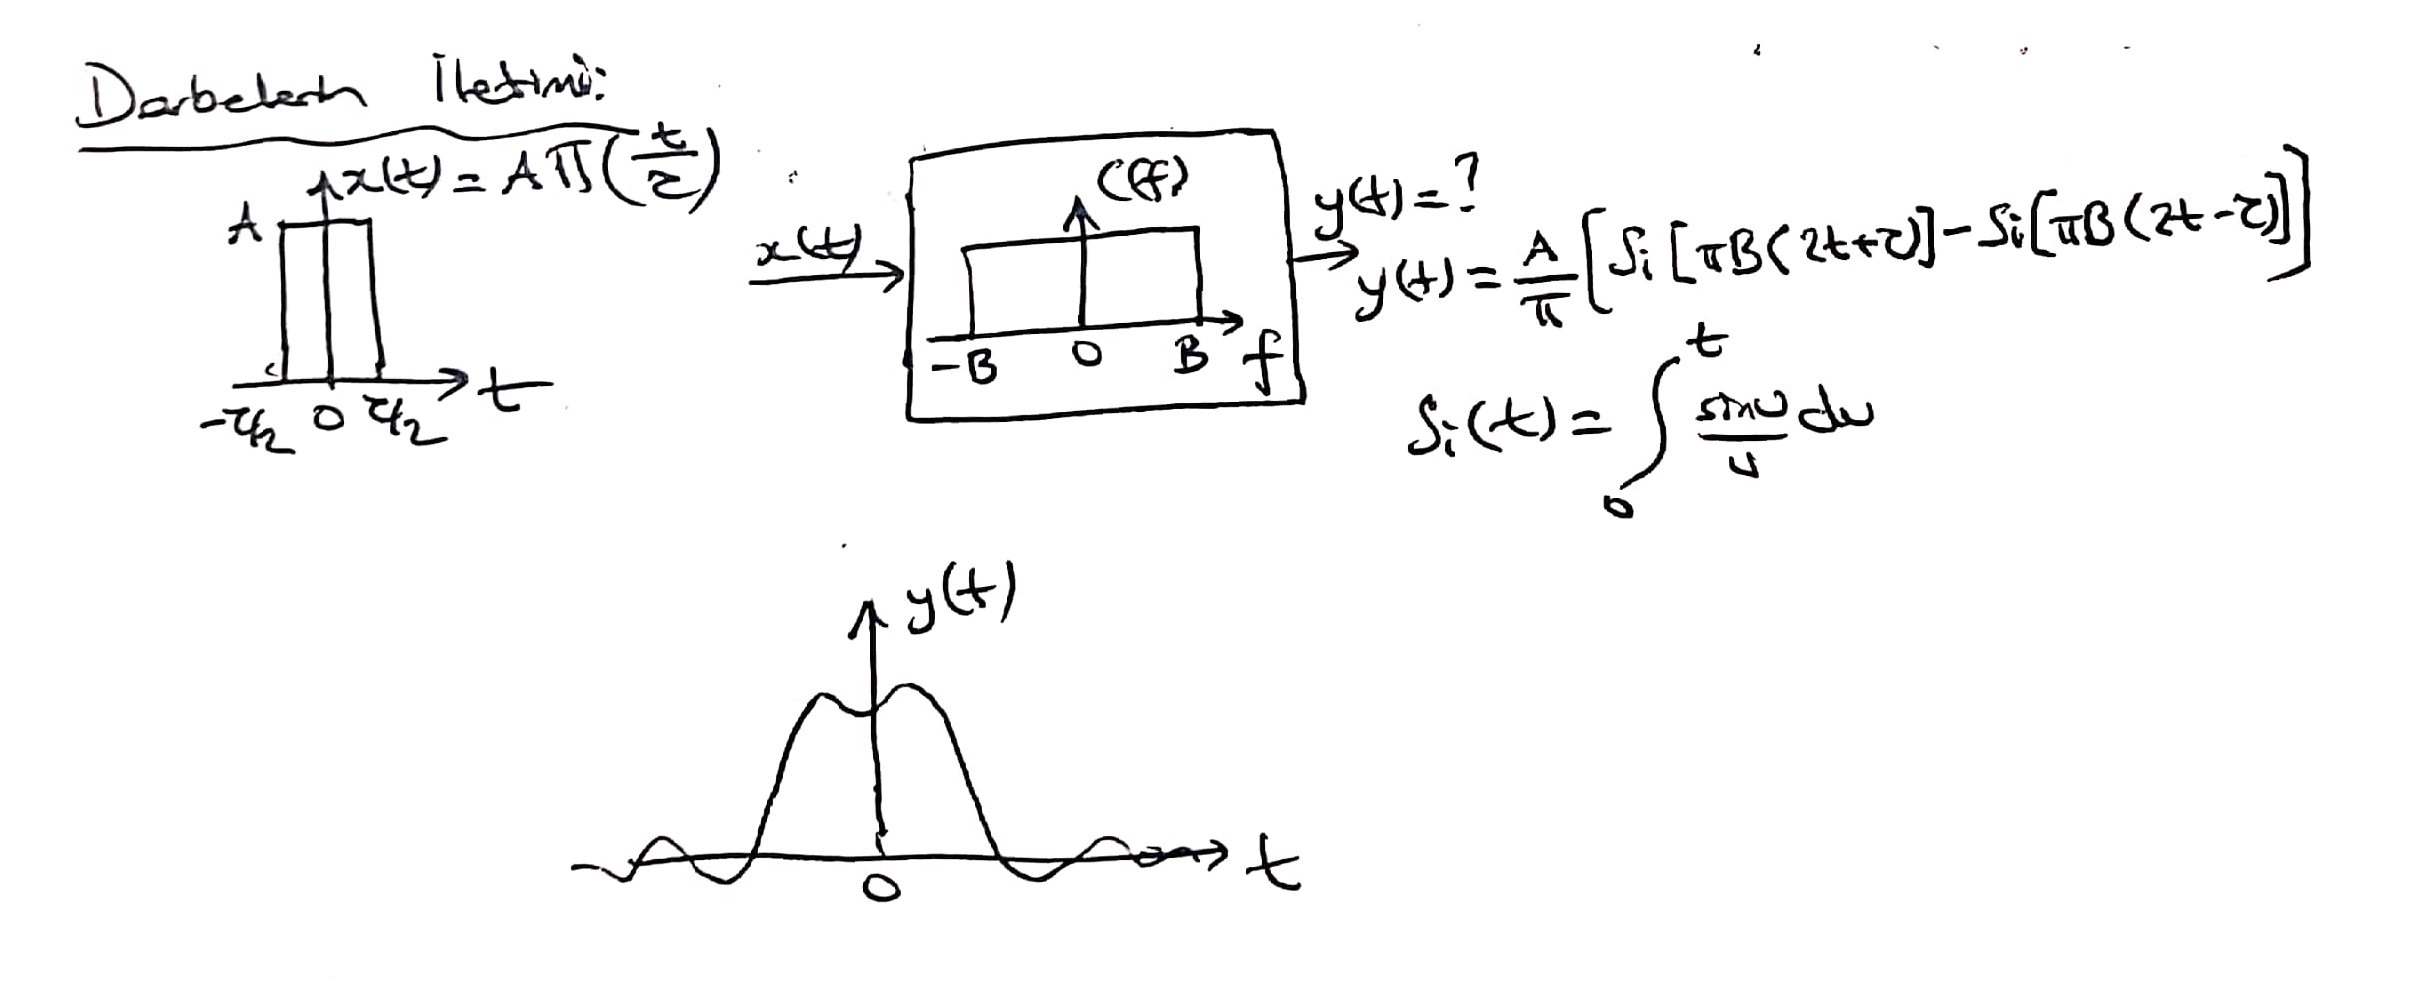 Darbelerin İletimi:
x(t) = AΠ(t/τ)
A
-τ/2 0 τ/2 t
x(t)
C(f)
-B 0 B f
y(t) = ?
y(t) = A/π [Si[πB(2t+τ)] - Si[πB(2t-τ)]]
Si(t) = ∫₀ᵗ sinu/u du
y(t)
0 t